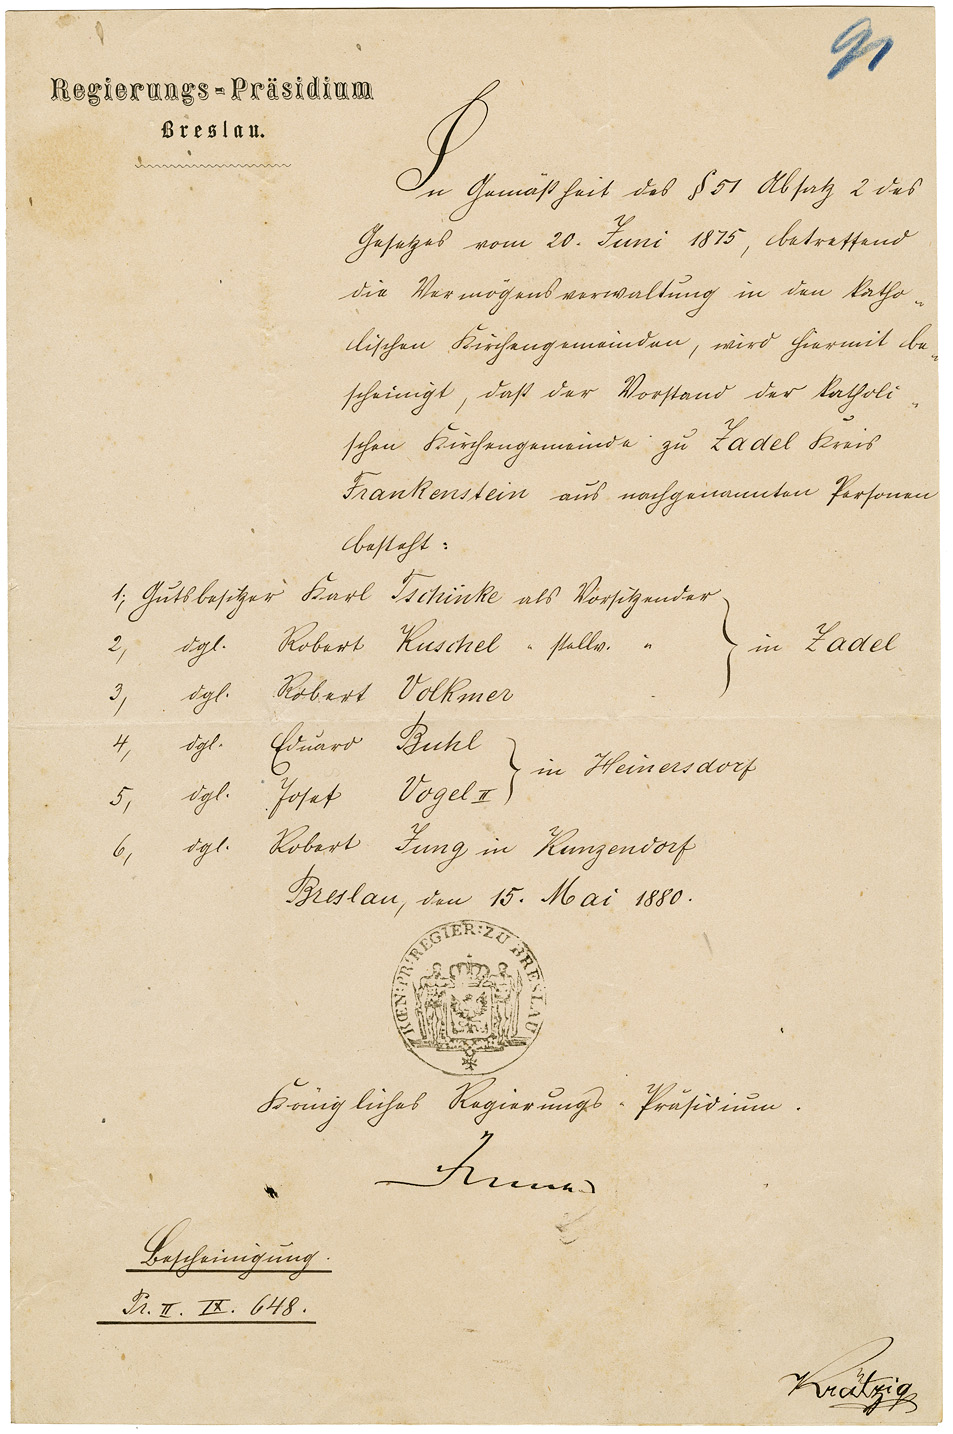 Regierungs-Präsidium
Breslau.
In Gemäßheit des § 51 Absatz 2 des
Gesetzes vom 20. Juni 1875, betreffend
die Vermögensverwaltung in den katho-
lischen Kirchengemeinden, wird hiermit be-
scheinigt, daß der Vorstand der katholi-
schen Kirchengemeinde zu Zadel Kreis
Frankenstein aus nachgenannten Personen
besteht:
1, Gutsbesitzer Karl Tschinke als Vorsitzender
2, dgl. Robert Kuschel " stellv. " } in Zadel
3, dgl. Robert Volkmer
4, dgl. Eduard Buhl
5, dgl. Josef Vogel II } in Heinersdorf
6, dgl. Robert Jung in Kunzendorf
Breslau, den 15. Mai 1880.
KŒN:PR:REGIER:ZU BRESLAU
Königliches Regierungs-Präsidium.
Bescheinigung.
Pr. II. IX. 648.
Krätzig